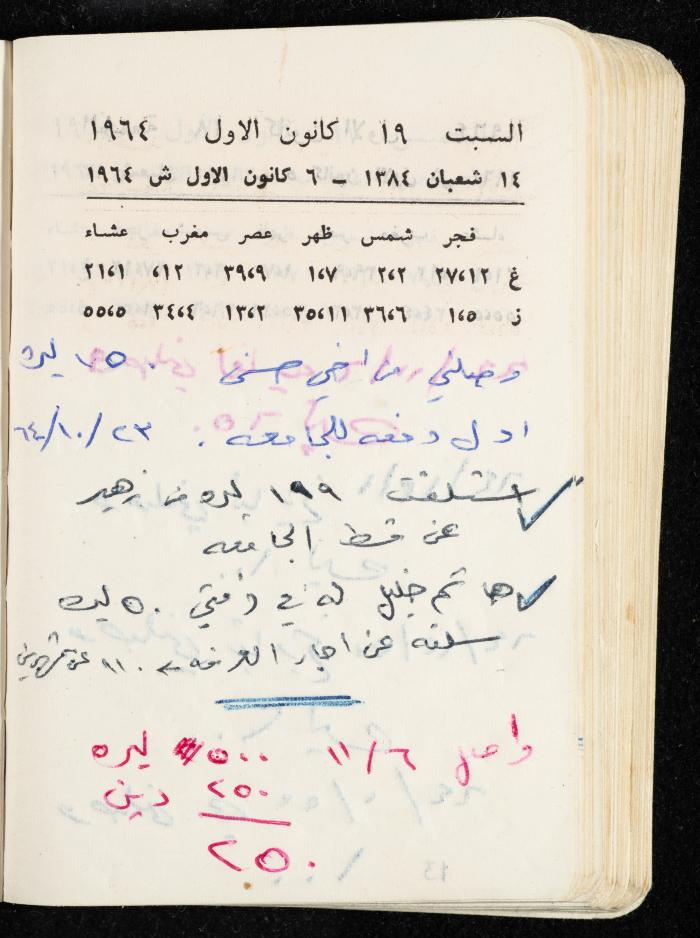 السبت ١٩ كانون الاول ١٩٦٤
١٤ شعبان ١٣٨٤ – ٦ كانون الاول ش ١٩٦٤
فجر شمس ظهر عصر مغرب عشاء
غ ١٢،٢٧ ٢،٢ ٧،١ ٩،٣٩ ١٢، ١،٢١
ز ٥،١ ٦،٣٦ ١١،٣٥ ٢،١٣ ٤،٣٤ ٥،٥٥
وصلني من اخي حسني ١٥٠ ليره
اول دفعه للجامعه . ٢٣/١٠/٦٤
استلفت ١٩٩ ليره من زهير
عن قسط الجامعه
هاشم خليل له في ذمتي ٥٠ ليره
سلفه عن اجار الغرفه ١١٠ عن شهرين
واصل ١١/٦ ٥٠٠ ليره
٢٥٠ دين
٢٥٠
13